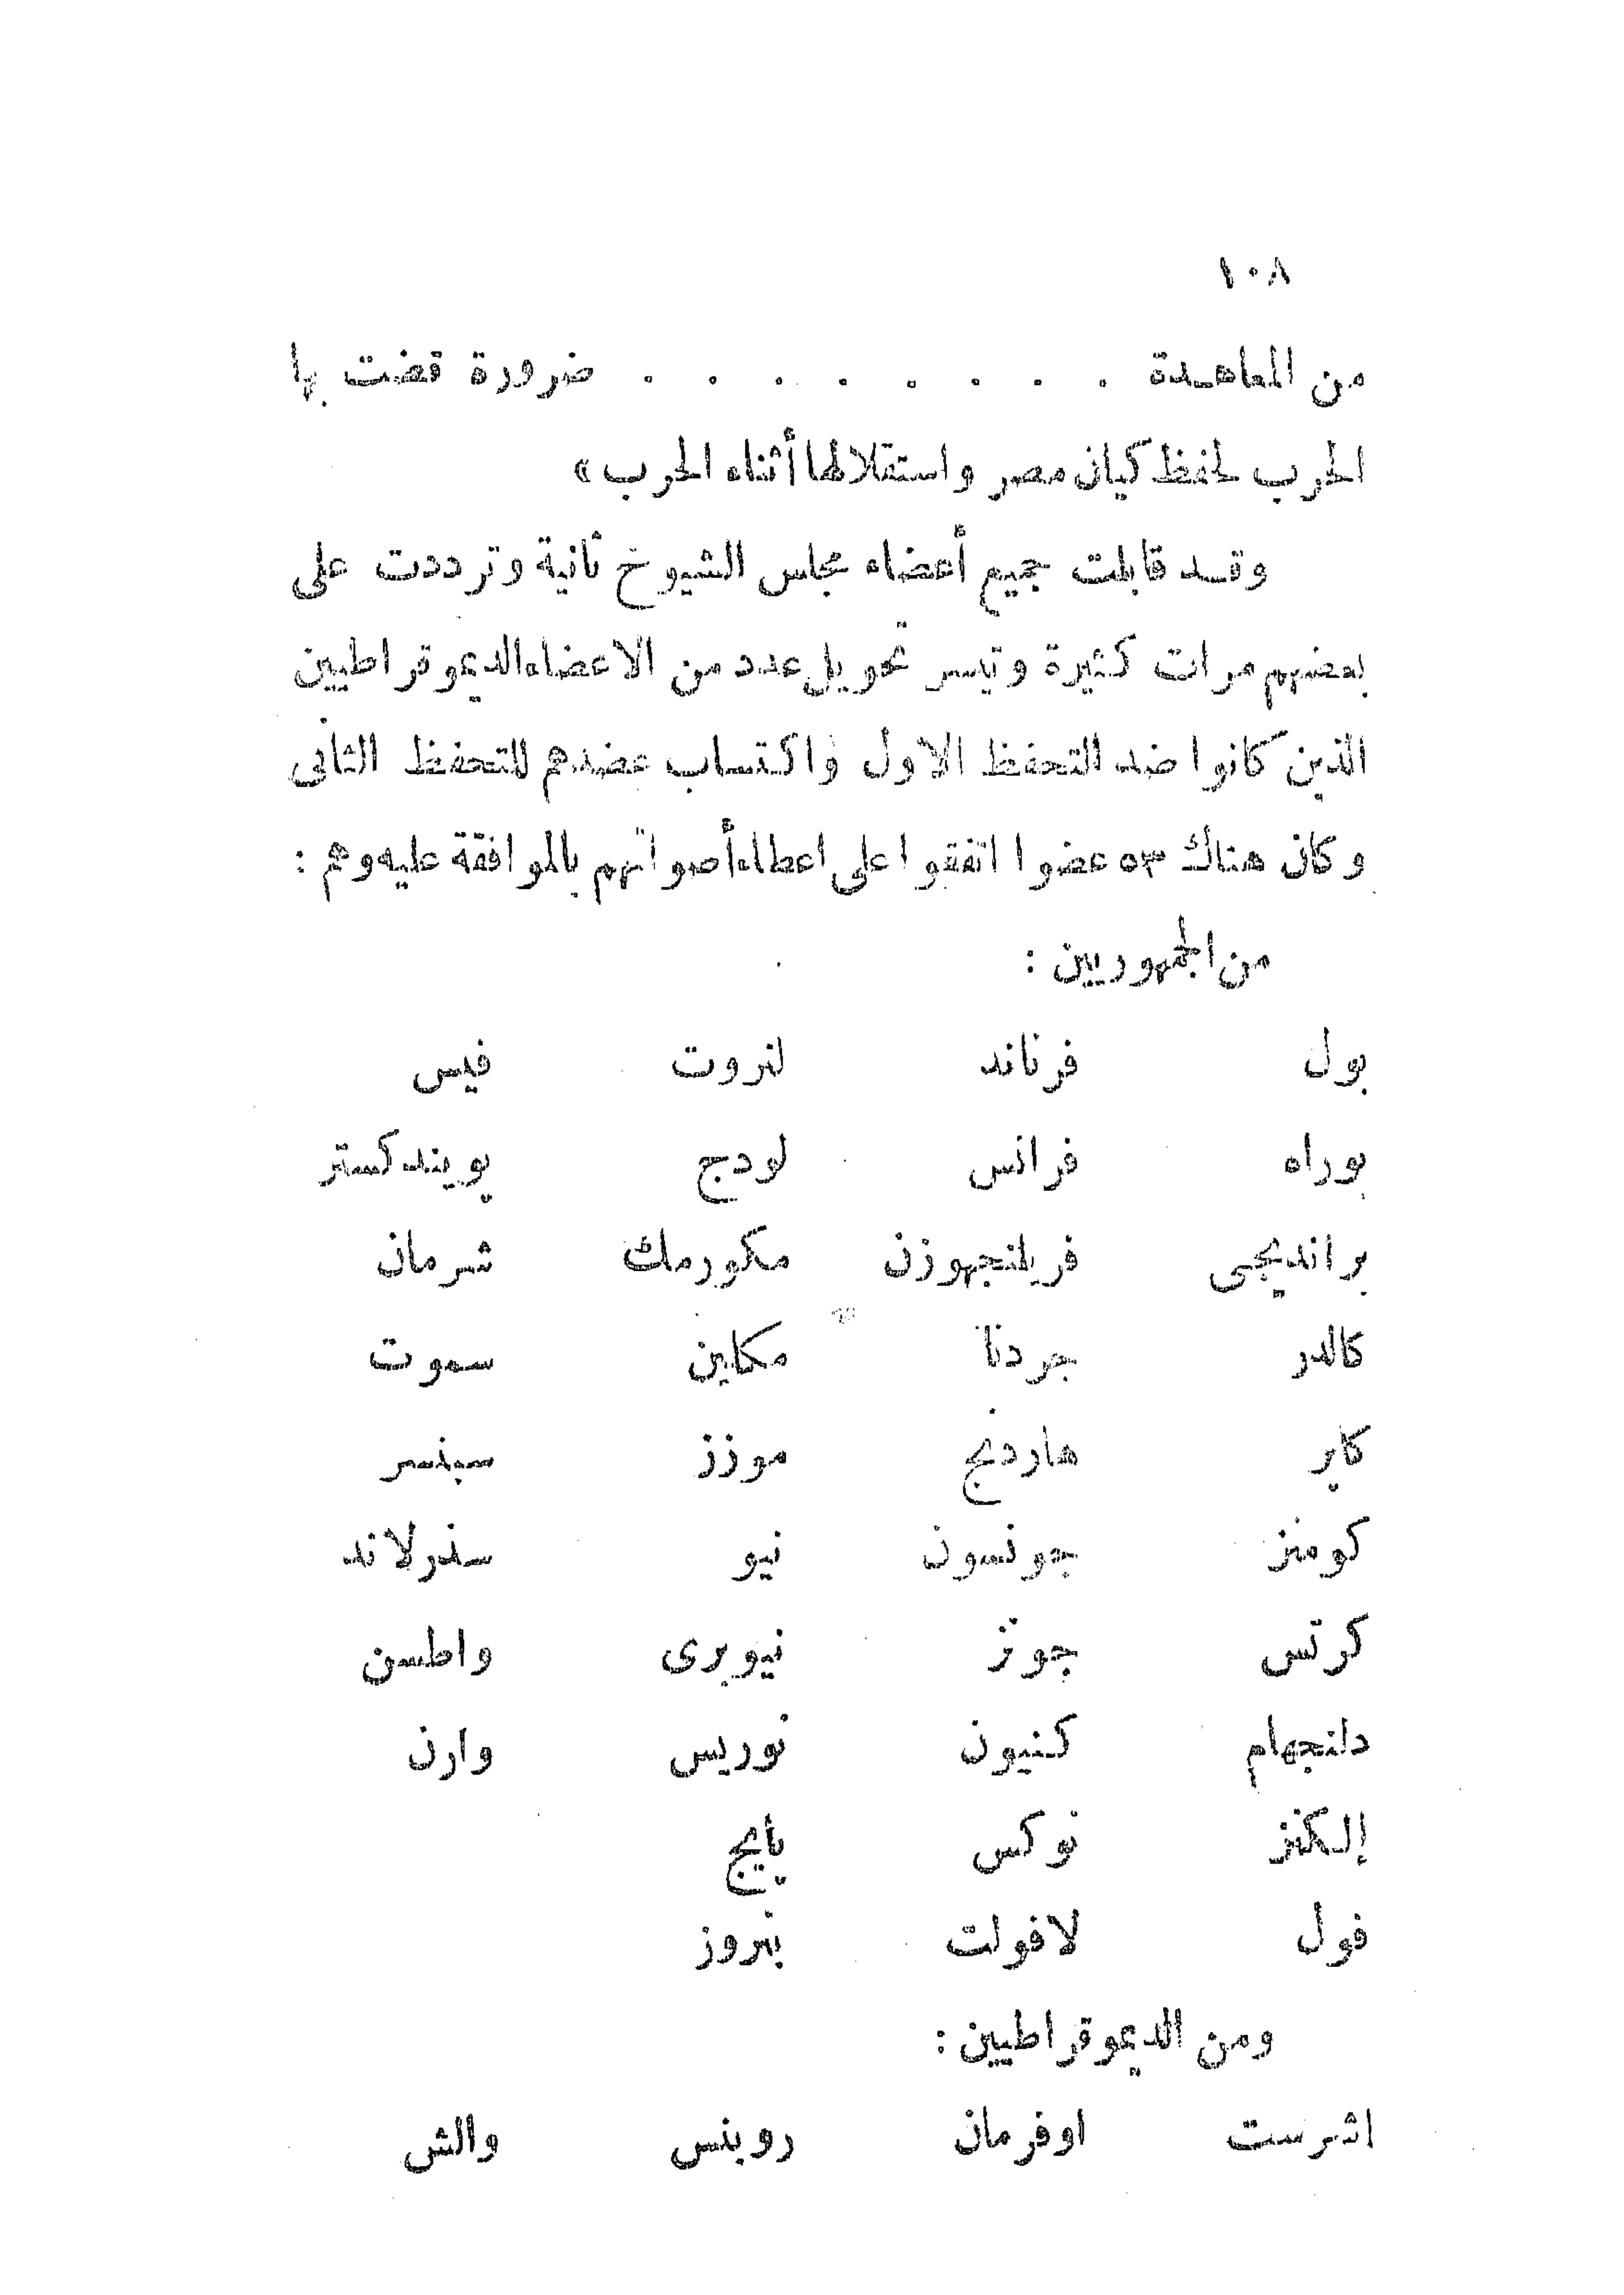 ١٠٨
من المعاهدة . . . . . . . . ضرورة قضت بها
الحرب لحفظ كيان مصر واستقلالها أثناء الحرب »
وقد قابلت جميع أعضاء مجلس الشيوخ ثانية وترددت على
بعضهم مرات كثيرة وتيسر تحويل عدد من الاعضاء الديموقراطيين
الذين كانوا ضد التحفظ الاول واكتساب عضدهم للتحفظ الثانى
وكان هناك ٥٣ عضوا اتفقوا على اعطاء أصواتهم بالموافقة عليه وهم :
من الجمهوريين :
بول فرناند لنروت فيس
بوراه فرانس لودج پويندكستر
برانديجى فريلنجهوزن مكورمك شرمان
كالدر جردنا مكاين سموت
كابر هاردنج موزز سبنسر
كومنز جونسون نيو سذرلاند
كرتس جونز نيوبرى واطسن
دلنجهام كنيون نوريس وارن
إلكنز نوكس پايج
فول لافولت پنروز
ومن الديموقراطيين :
اشرست اوفرمان روبنس والش